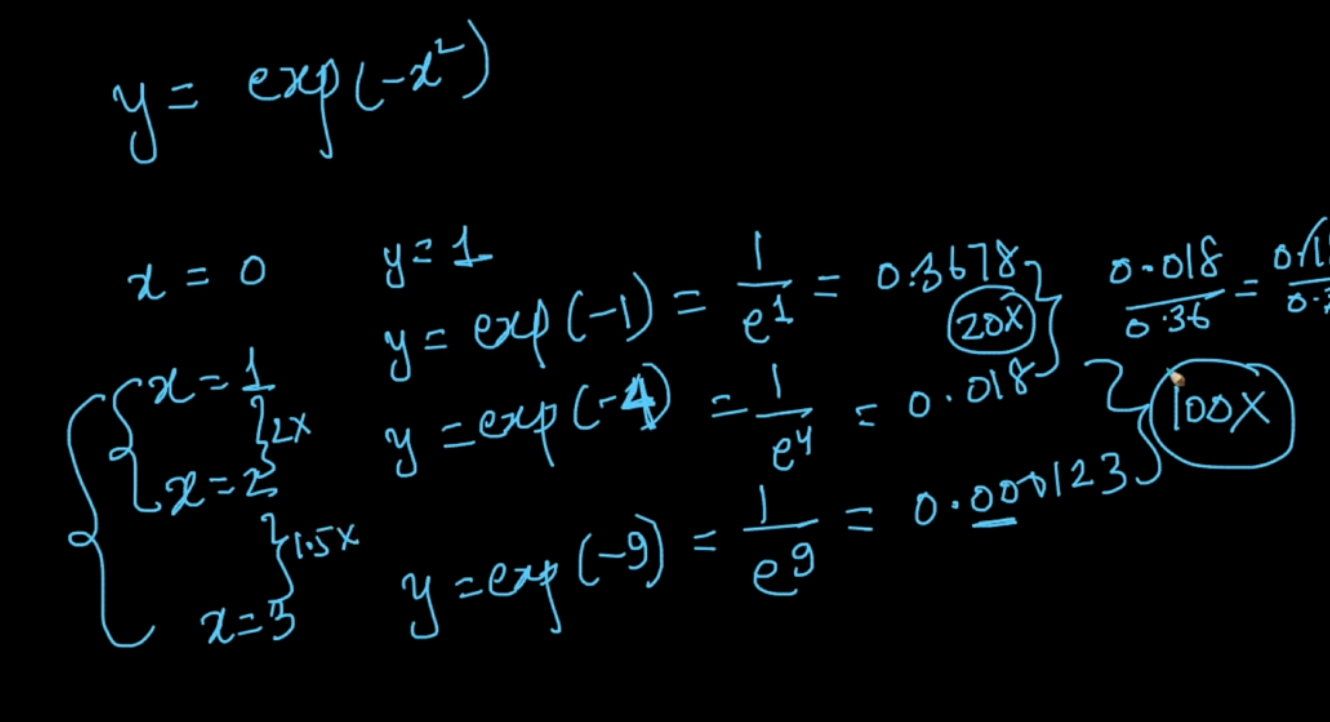 y = exp(-x²)
x = 0 y = 1
x = 1 y = exp(-1) = 1/e¹ = 0.3678 20X 0.018/0.36 =
2X
x = 2 y = exp(-4) = 1/e⁴ = 0.018 100X
1.5X
x = 3 y = exp(-9) = 1/e⁹ = 0.000123